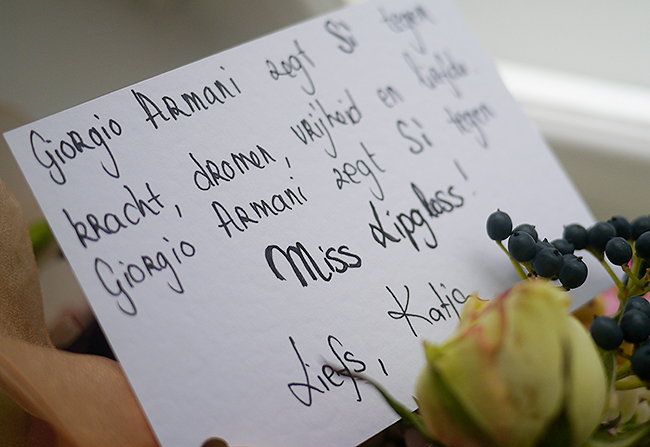 Giorgio Armani zegt Si tegen
kracht, dromen, vrijheid en liefde
Giorgio Armani zegt Si tegen
Miss Lipgloss!
Liefs, Katja